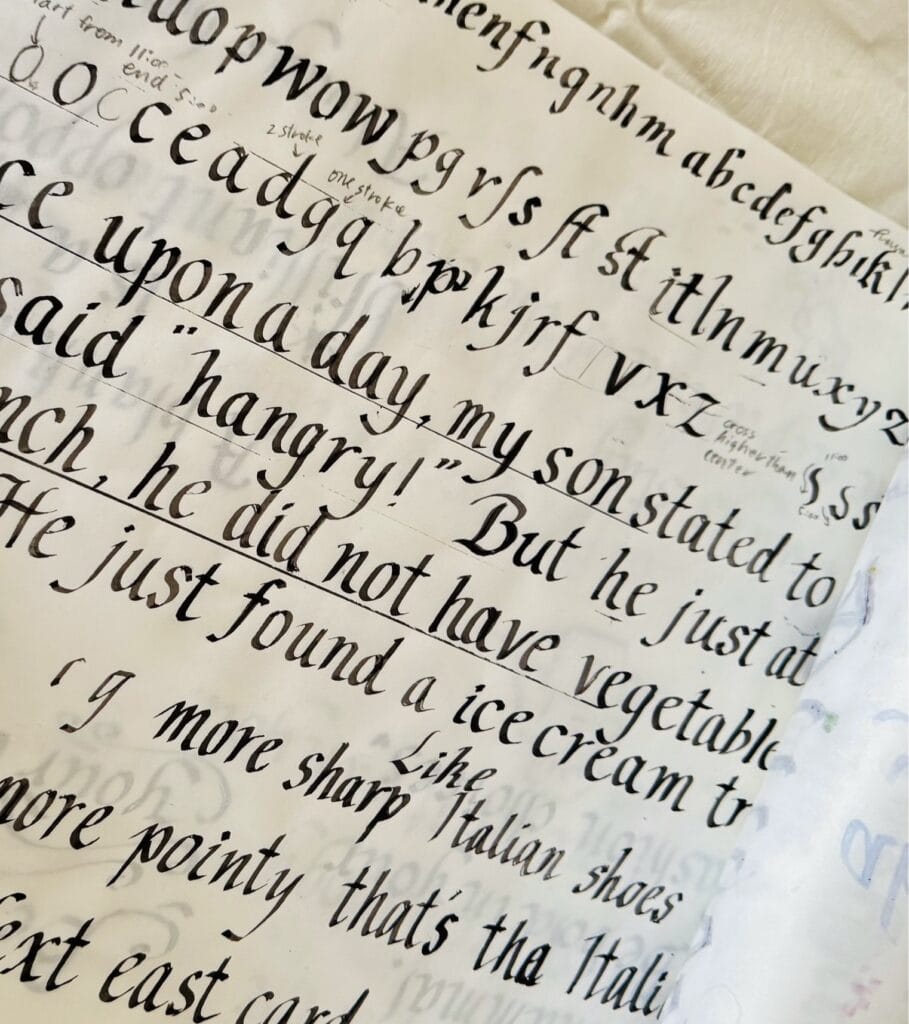 menfngnhm abcdefghıkl
uopwowpgrſs ſt st itlnmuxyz
start from 11:00
end 5:00
2 stroke
one stroke
O O C c e a d g q b p kjrf v x z
cross
higher than
center
11:00
s s s
ce upon a day, my son stated to
said "hangry!" But he just at
nch, he did not have vegetable
He just found a ice cream tr
g more sharp Like Italian shoes
more pointy that's tha Itali
ext east card